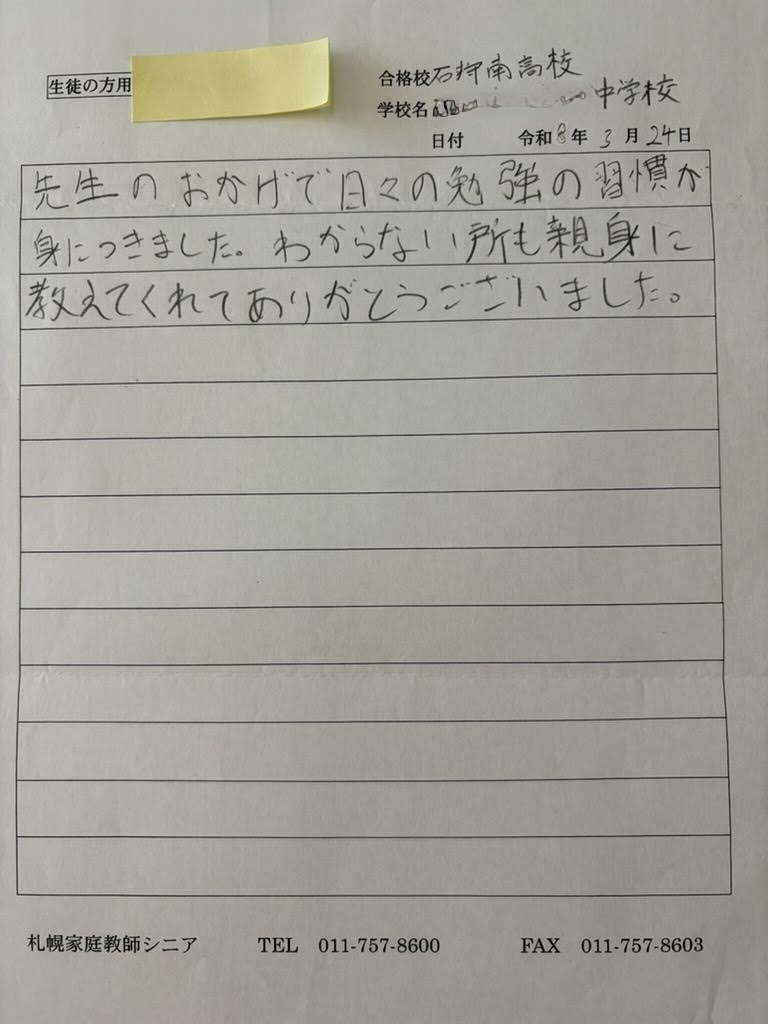 生徒の方用
合格校 石狩南高校
学校名 中学校
日付 令和8年3月24日
先生のおかげで日々の勉強の習慣が
身につきました。わからない所も親身に
教えてくれてありがとうございました。
札幌家庭教師シニア TEL 011-757-8600 FAX 011-757-8603